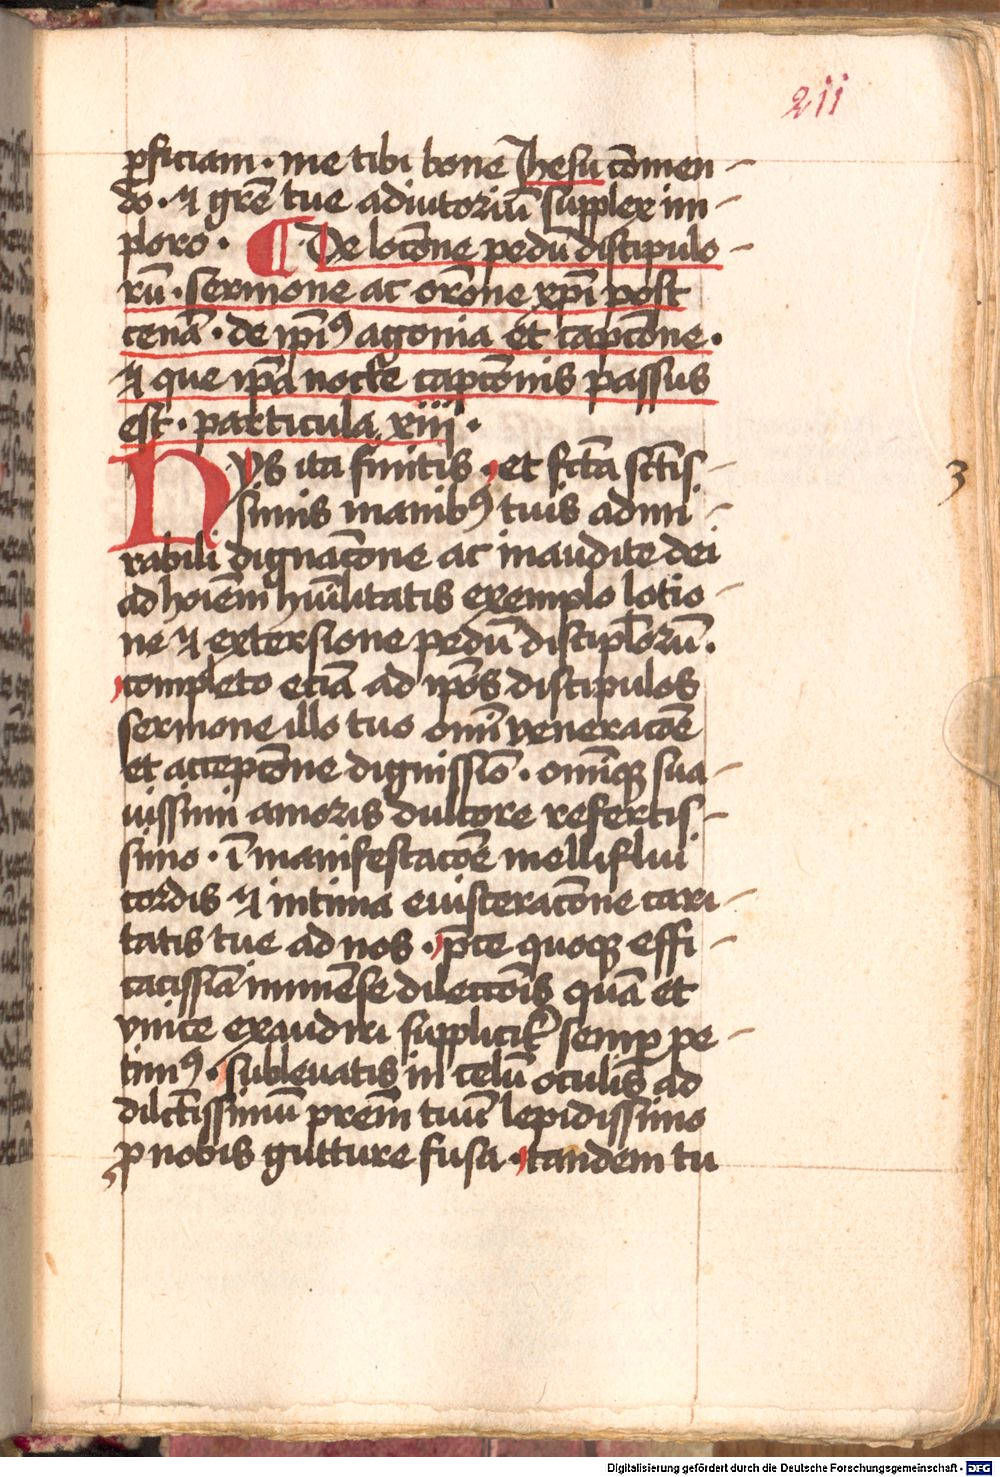 211
ꝑficiam · me tibi bone Jhesu cōmen
do · ⁊ grē tue adiutoriū supplex im
ploro · ¶ De locōne pedū discipulo
rū · sermone ac orōne xp̄i post
cenā · de ip̄iꝰ agonia et capcōne ·
⁊ que ip̄a nocte capcōnis passus
est · particula xiiij ·
Hys ita finitis · et fc̄ta sc̄tis
simis manibꝰ tuis admi
rabili dignacōne ac inaudite dei
ad hoīem hūilitatis exemplo lotio
ne ⁊ extersione pedū discipl̄orū ·
completo eciā ad ip̄os discipulos
sermone illo tuo om̄i veneracōe
et accepcōne dignissīo · omīqꝫ sua
uissimi amoris dulcore refertis
simo · ī manifestacōe melliflui
cordis ⁊ intima euisceracōne cari
tatis tue ad nos · p̄ce quoqꝫ effi
cacissīa immēse dileccōis quā et
vnice exaudiri supplicit̉ semꝑ pe
timꝰ · subleuatis in celū oculis ad
dilc̄tissimū prēm tuū lepidissimo
ꝓ nobis gutture fusa · tandem tu
3
Digitalisierung gefördert durch die Deutsche Forschungsgemeinschaft - DFG